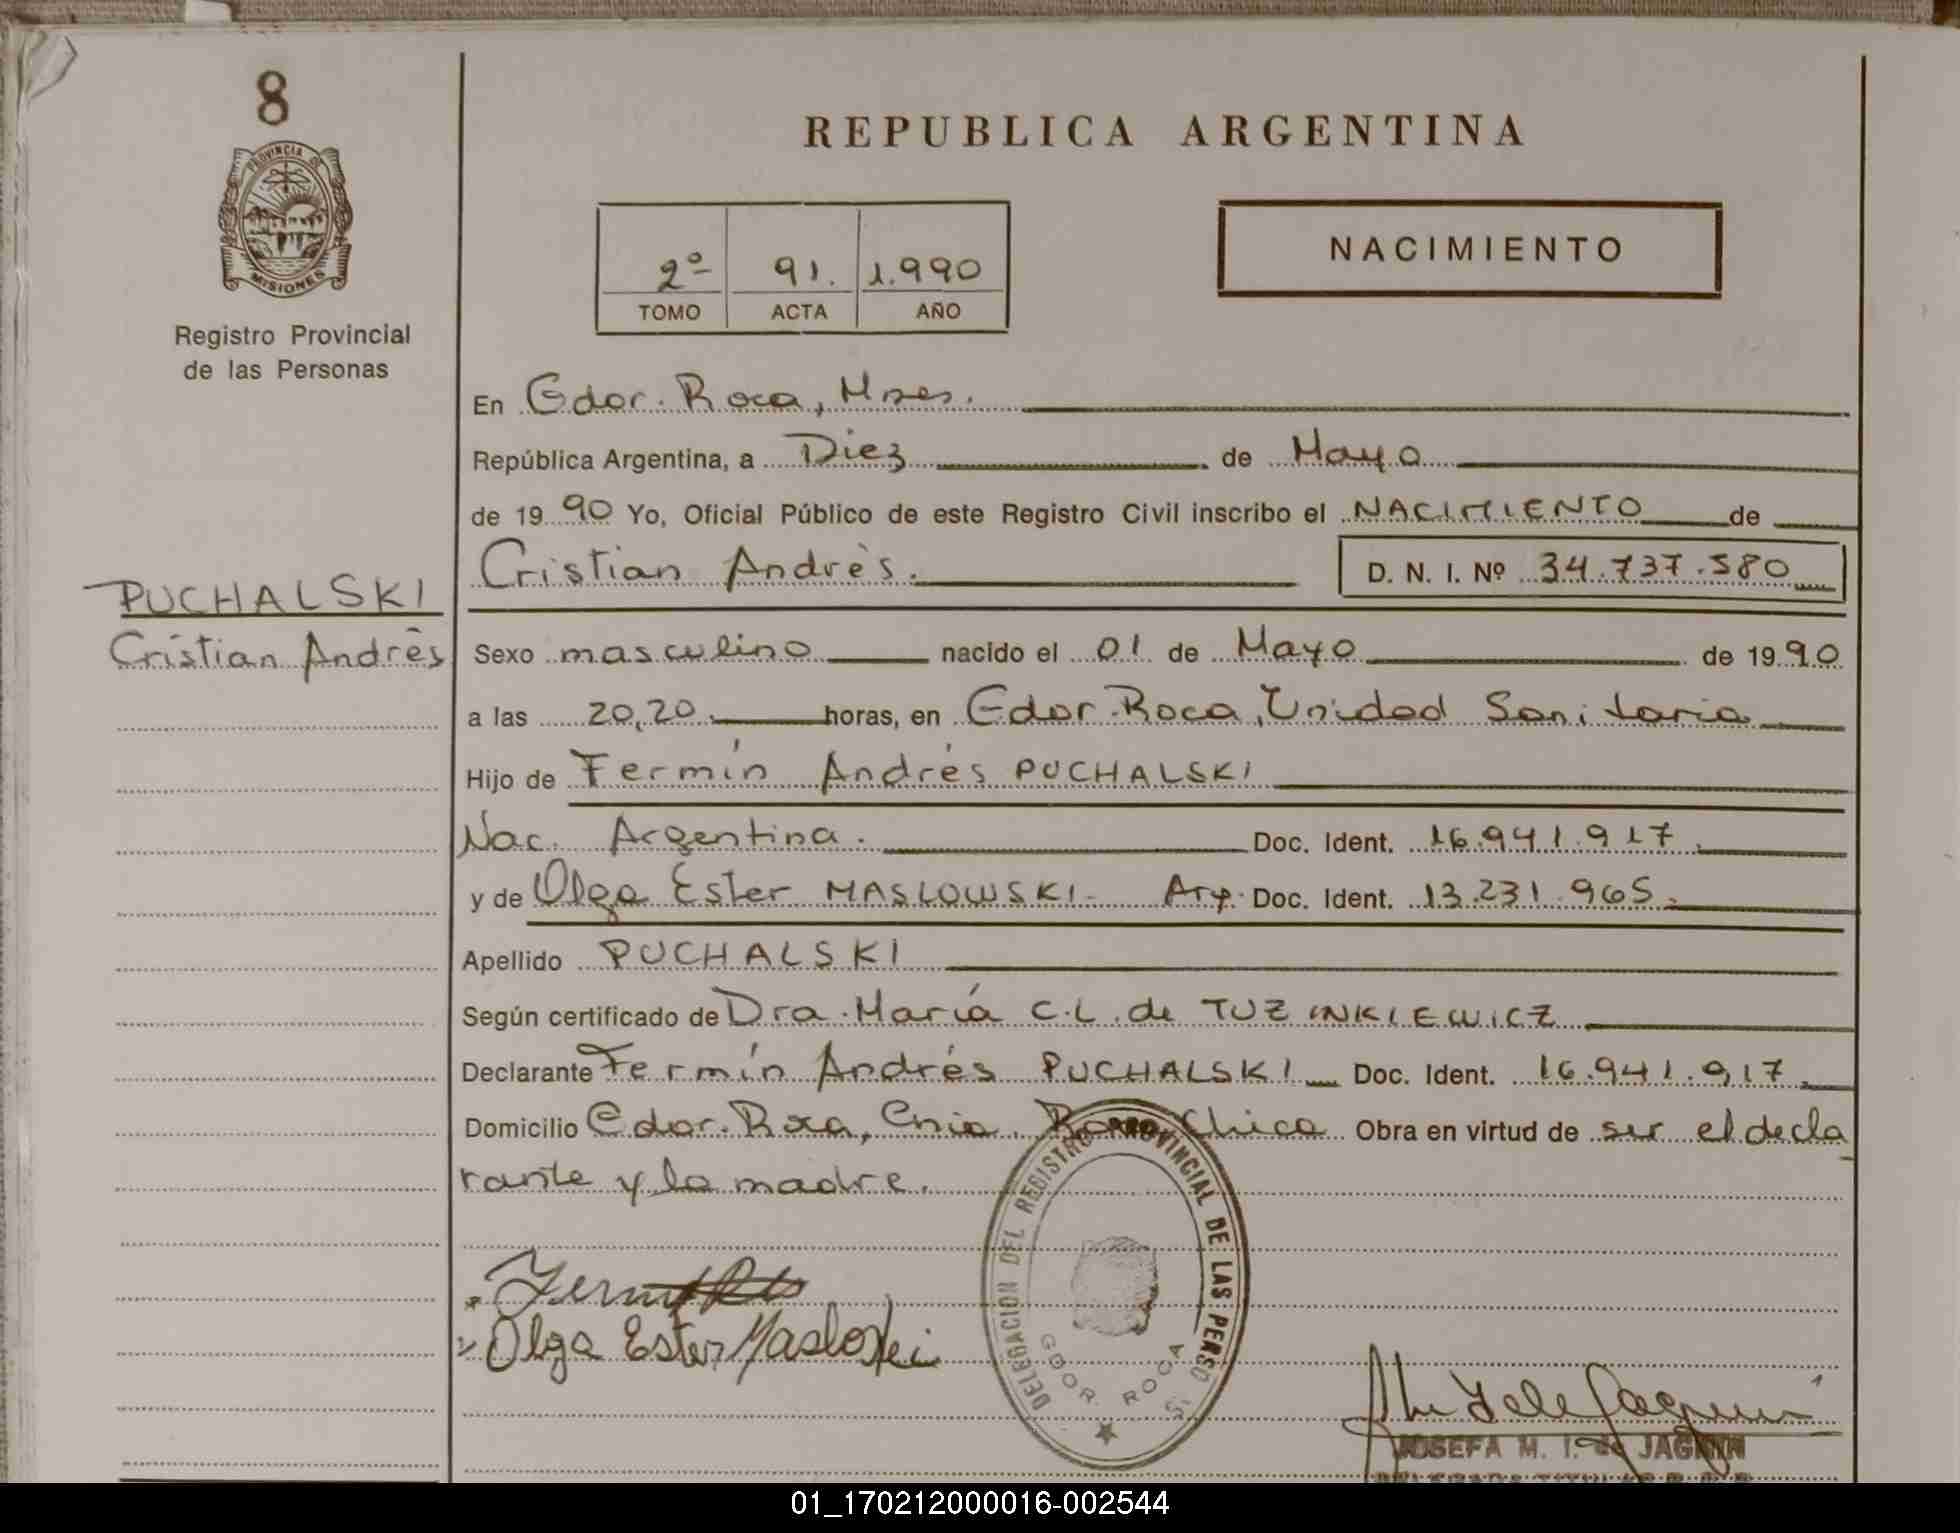 8
PROVINCIA DE
MISIONES
Registro Provincial
de las Personas
REPUBLICA ARGENTINA
2º 91. 1.990
TOMO ACTA AÑO
NACIMIENTO
En Gdor. Roca, Mnes.
República Argentina, a Diez de Mayo
de 1990 Yo, Oficial Público de este Registro Civil inscribo el NACIMIENTO de
Cristian Andrès. D. N. I. Nº 34.737.580
PUCHALSKI
Cristian Andrès
Sexo masculino nacido el 01 de Mayo de 1990
a las 20,20 horas, en Gdor. Roca, Unidad Sanitaria
Hijo de Fermín Andrés PUCHALSKI
Nac. Argentina. Doc. Ident. 16.941.917.
y de Olga Ester MASLOWSKI- Arg. Doc. Ident. 13.231.965.
Apellido PUCHALSKI
Según certificado de Dra. María C.L. de TUZINKIEWICZ
Declarante Fermín Andrés PUCHALSKI Doc. Ident. 16.941.917.
Domicilio Gdor. Roca, Cnia. Roca Chica Obra en virtud de ser el decla
rante y la madre.
DELEGACION DEL REGISTRO PROVINCIAL DE LAS PERSO
GDOR. ROCA
Olga Ester Masloski
JOSEFA M. I. de JAGMIN
DELEGADA TITULAR
01_170212000016-002544